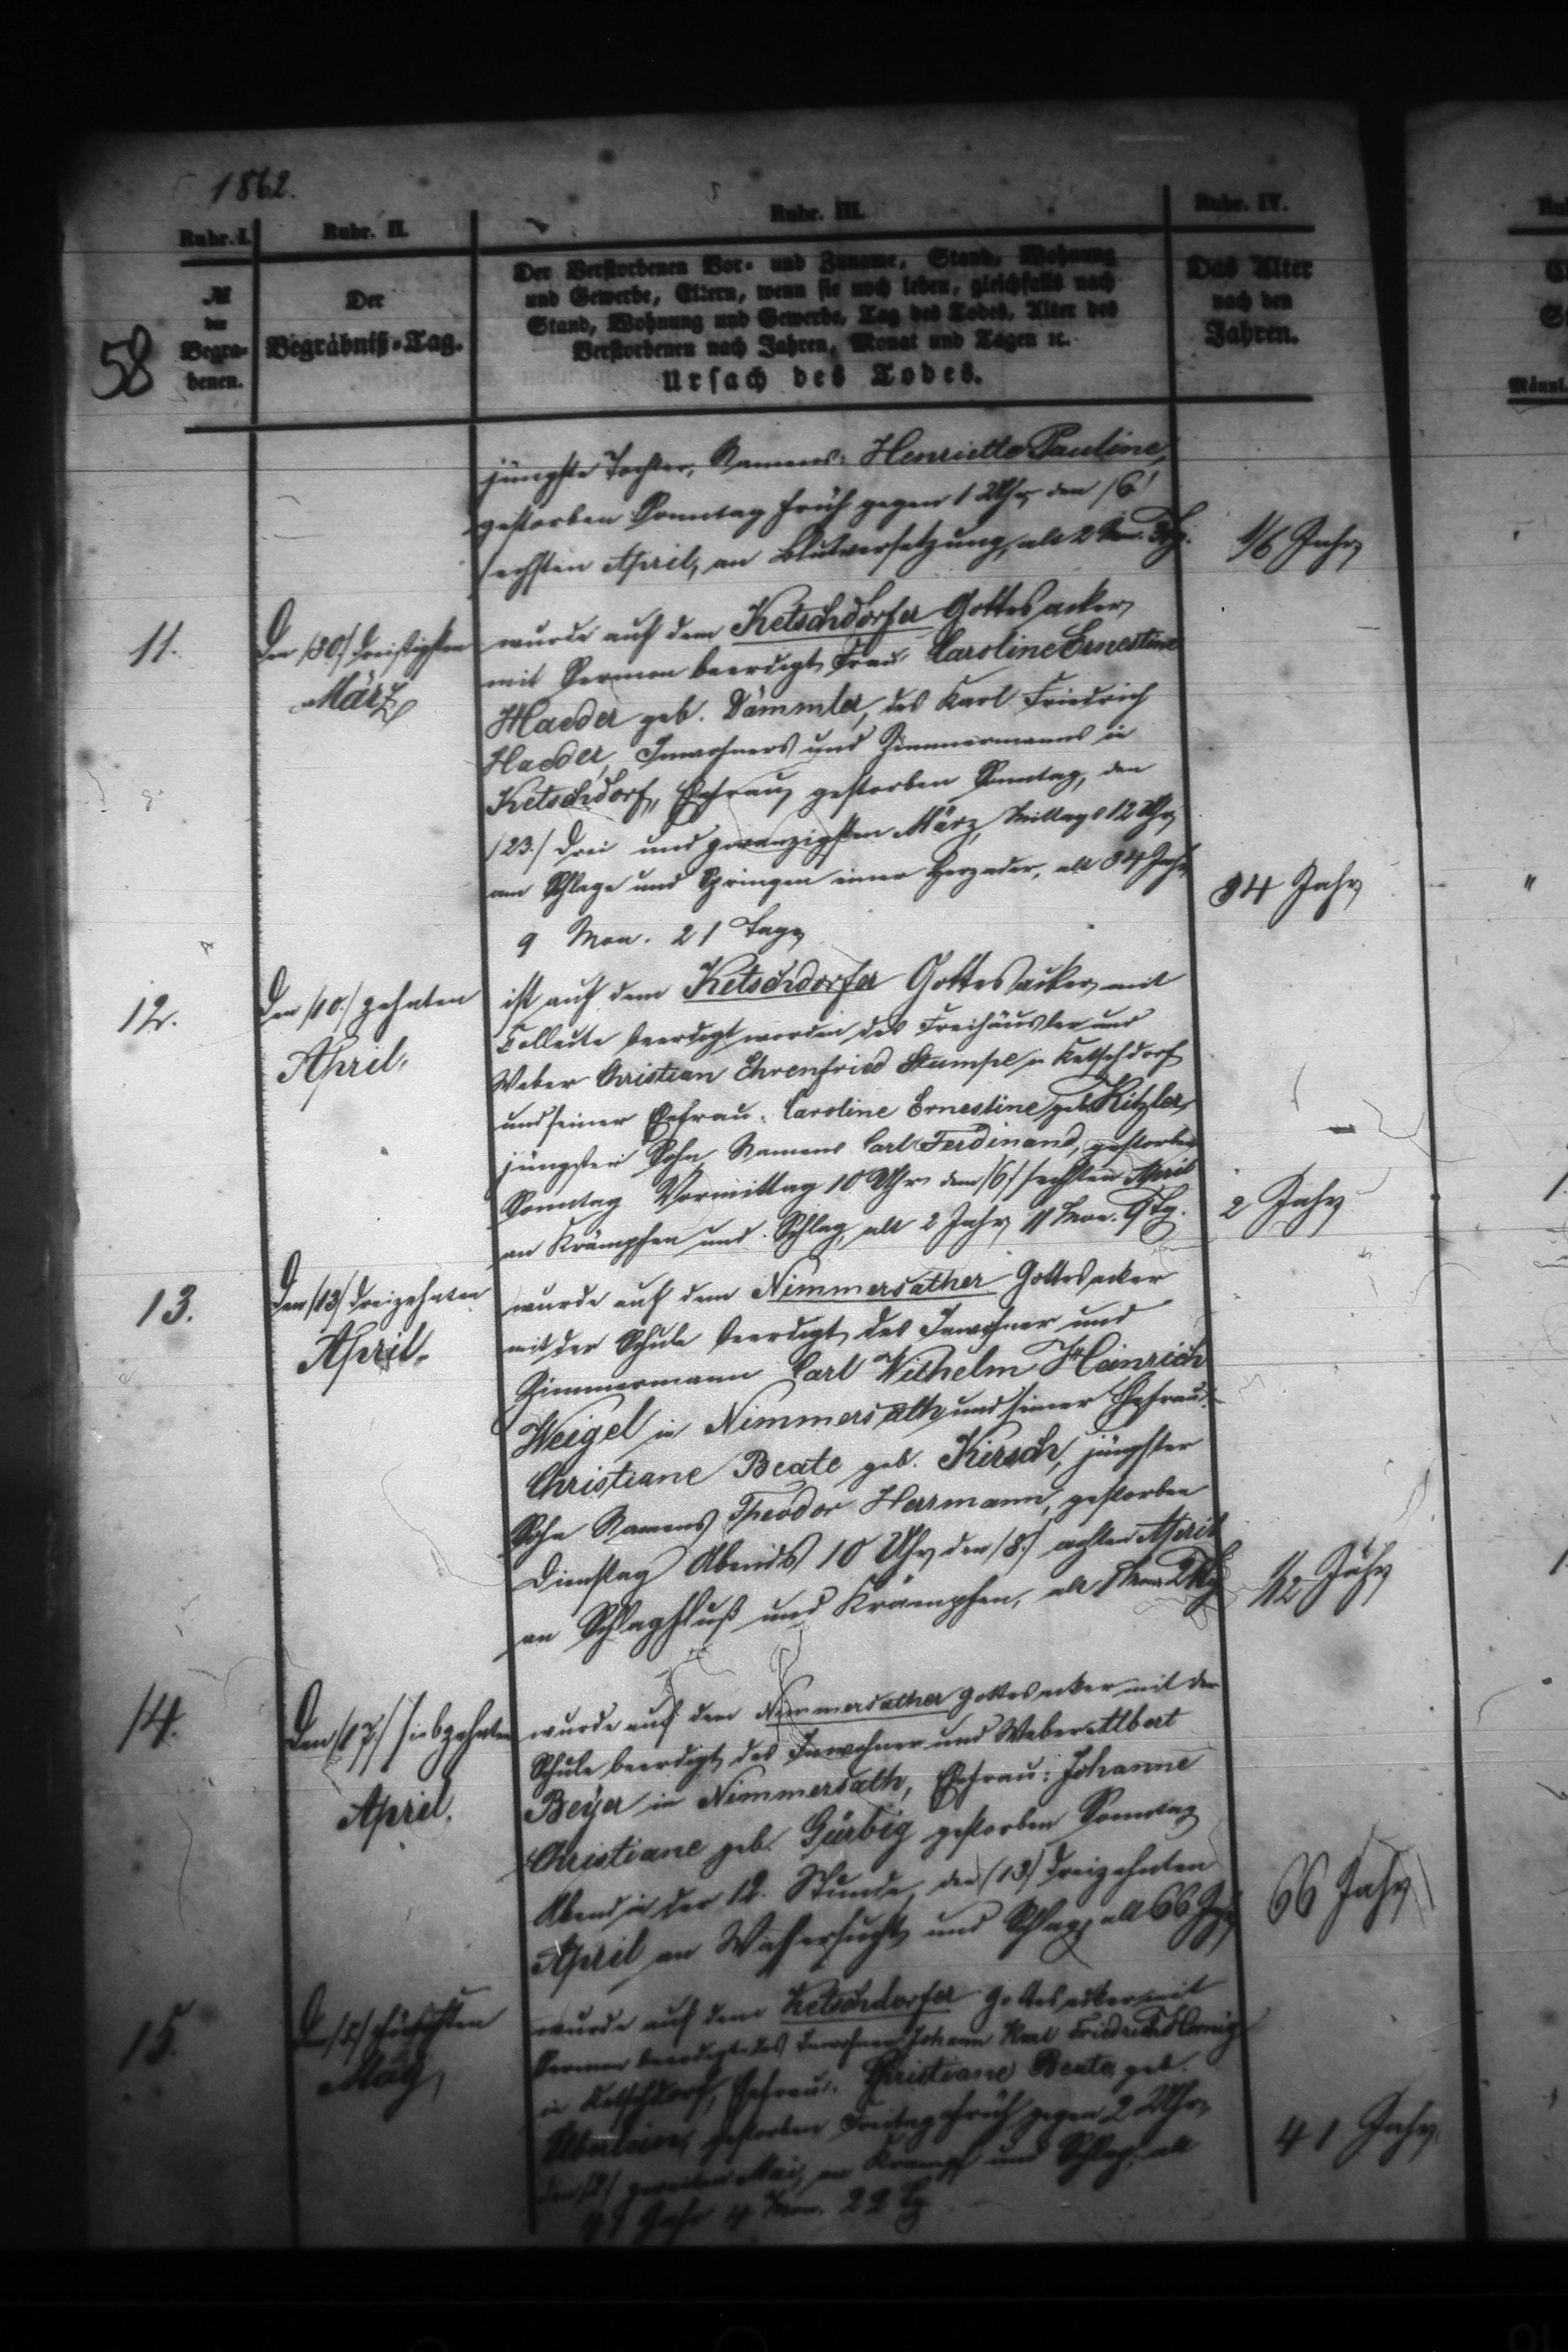 1862.
Rubr. I.
Rubr. II.
Rubr. III.
Rubr. IV.
58
№
der
Begra-
benen.
Der
Begräbniß-Tag.
Der Verstorbenen Vor- und Zuname, Stand, Wohnung
und Gewerbe, Eltern, wenn sie noch leben, gleichfalls nach
Stand, Wohnung und Gewerbe, Tag des Todes, Alter des
Verstorbenen nach Jahren, Monat und Tagen ꝛc.
Ursach des Todes.
Das Alter
nach den
Jahren.
jüngste Tochter, Namens: Henriette Pauline,
gestorben Sonntag früh gegen 1 Uhr, den /6/
sechsten April, an Blutversetzung, alt 2 Mon. Tg.
1/6 Jahr
11.
Den /30/ dreißigsten
März
wurde auf dem Ketschdorfer Gottesacker
mit Sermon beerdigt, Frau Caroline Ernestine
Haeder geb. Dämmler, des Karl Friedrich
Haeder, Inwohners und Zimmermanns in
Ketschdorf, Ehefrau, gestorben Sonntag, den
/23./ drei und zwanzigsten März, Mittags 12 Uhr,
am Schlage und Springen einer Herzader, alt 34 Jahr,
9 Mon. 21 Tage
34 Jahr
12.
Den /10./ zehnten
April.
ist auf dem Ketschdorfer Gottesacker mit
Collecte beerdigt worden des Freihäusler und
Weber Christian Ehrenfried Stumpe in Ketschdorf
und seiner Ehefrau: Caroline Ernestine geb. Kitzler,
jüngster Sohn, Namens Carl Ferdinand, gestorben
Sonntag Vormittag 10 Uhr den /6/ sechsten April
an Krämpfen und Schlag, alt 2 Jahr 11 Mon. 9 Tg.
2 Jahr
13.
Den /13/ dreizehnten
April.
wurde auf dem Nimmersather Gottesacker
mit der Schule beerdigt, des Inwohner und
Zimmermann Carl Wilhelm Heinrich
Weigel in Nimmersath und seiner Ehefrau
Christiane Beate geb. Kirsch, jüngster
Sohn Namens Theodor Herrmann, gestorben
Dienstag Abends 10 Uhr, den /8./ achten April
an Schlagfluß und Krämpfen, alt 1 Mon. 2 Tg.
1/12 Jahr
14.
Den /17/ siebzehnten
April.
wurde auf dem Nimmersather Gottesacker mit der
Schule beerdigt, des Inwohner und Weber Albert
Beyer in Nimmersath, Ehefrau: Johanne
Christiane geb. Gürbig gestorben Sonntag
Abend in der 12. Stunde, den /13./ dreizehnten
April an Wassersucht und Schlag, alt 66 Jahr
66 Jahr
15.
Den /5/ fünften
May,
wurde auf dem Ketschdorfer Gottesacker mit
Sermon beerdigt des Inwohner Johann Karl Friedrich
in Ketschdorf, Ehefrau: Christiane Beate geb.
gestorben Freitag früh gegen 2 Uhr,
den /2/ zweiten Mai, an Krampf und Schlag, alt
41 Jahr 4 Mon. 22 Tg.
41 Jahr